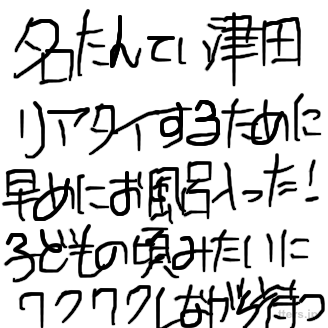 名たんてい津田
リアタイするために
早めにお風呂入った!
子どもの頃みたいに
ワクワクしながら待つ